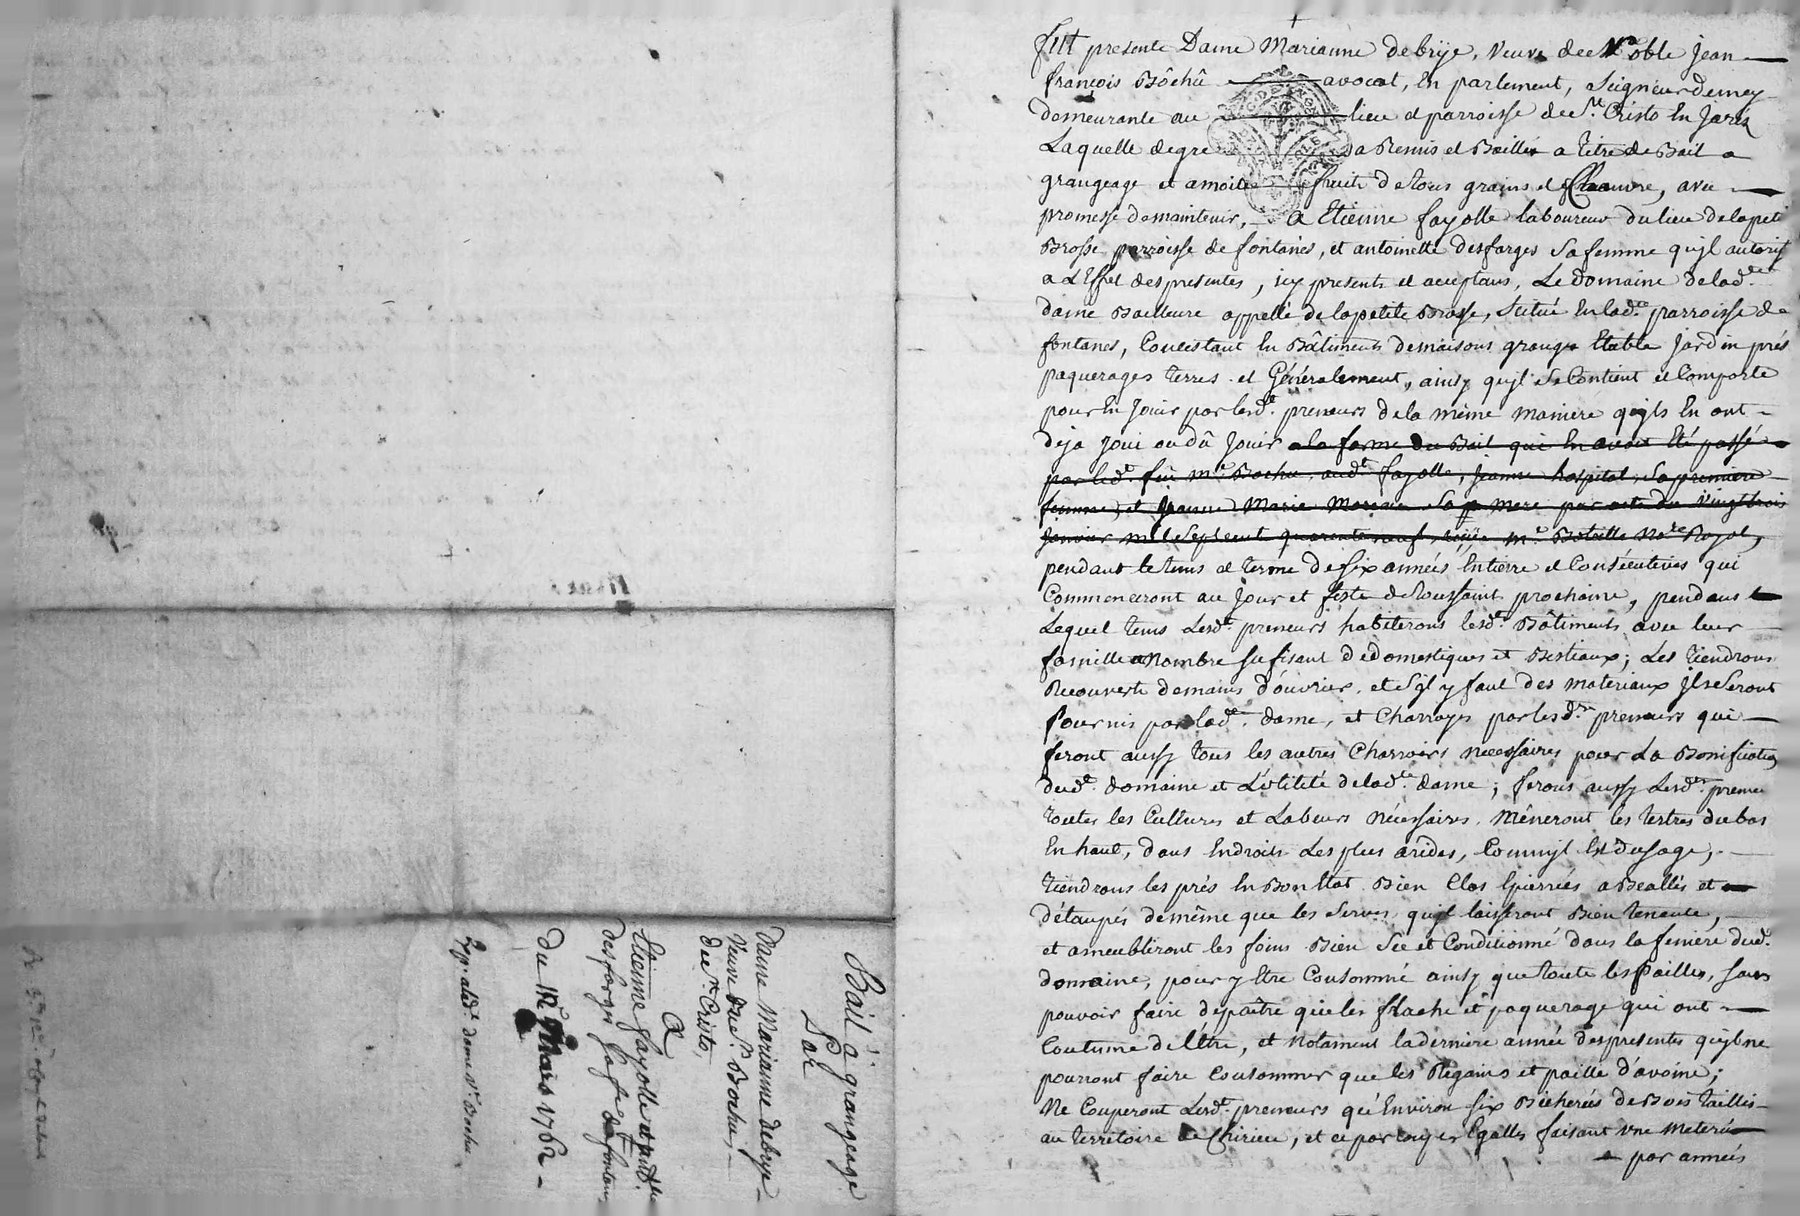 Bail a grangeage
Par
Dame Marianne debrye
Veuve du Sr. Bochu,
de St. Cristo,
a
Etienne fayolle et antte.
desforges sa fe de fontanes
Du 1r. Mars 1762
Exp: alad. dame ve. Bochu
Fut presente Dame Marianne debrÿe, Veuve de Noble Jean
françois Bôchû avocat, En parlement, Seigneur demey
demeurante au lieu et parroisse de St. Cristo En Jarez
Laquelle degre a Remis et Baillé a titre de Bail a
grangeage et amoitie fruits de tous grains et Chanvre, avec
promesse demaintenir, a Etienne fayolle laboureur du lieu delapetite
Brosse parroisse de fontanès, et antoinette desfarges Safemme qu'jl autorise
a L'Effet des presentes, icy presents et aceptans, Le Domaine delad.
dame Bailleure appellé delapetite Brosse, Scitué En lad. parroisse de
fontanes, Consistant En Bâtiments demaisons grange Etable Jardin prés
paquerages terres et Généralement, ainsy qu'jl Se Contient et Comporte
pour En Jouir par lesd. preneurs de la même maniere qu'jls En ont
déja joui ou dû Jouir a la forme du Bail qui En avoit Eté passé
par led. feu me. Bochu aud. fayolle, jeanne hospital, Sa premiere
femme, et Jeanne Marie Sa mere par acte du Vingttrois
janvier mil Septcent quarante neuf, me. Notre. Royal,
pendant le tems et terme de six années Entiere et Consécutives qui
Commenceront au Jour et feste de toussaint prochaine, pendant
Lequel tems Lesd. preneurs habiterons lesd. Bâtiments avec leur
famille Nombre sufisant dedomestiques et Bestiaux; Les tiendrons
Recouverts demains d'ouvrier, et S'jl y faut des materiaux jls Seront
fournis par lad. dame, et Charroyes par lesd. preneurs qui
feront aussy tous les autres Charrois necessaires pour La Bonification
dud. domaine et L'utilité delad. dame; ferons aussy Lesd. preneurs
toutes les Cultures et Labeurs Nécessaires, Mêneront les tertres dubas
En haut, dans Endroits Les plus arides, Commjl Est dusage,
tiendrons les prés En Bon Etat Bien Clos Epierrées aBealles et
détaupés demême que les Serves qu'jl laisseront Bien tenente,
et ameubliront les foins Bien Sec et Conditionné dans la feniere dud.
domaine, pour y Etre Consommé ainsy que toute les pailles, sans
pouvoir faire dépaître que les flache et paquerage qui ont
Coutume de l'Etre, et Notament laderniere année des presentes qu'jl ne
pourront faire Consommer que les Regains et paille d'avoine;
Ne Couperont Lesd. preneurs qu'Environ Six Bicherées de Bois taillis
au territoire de Chirieu, et ce par Coupes Egalles faisant une meterée
par années